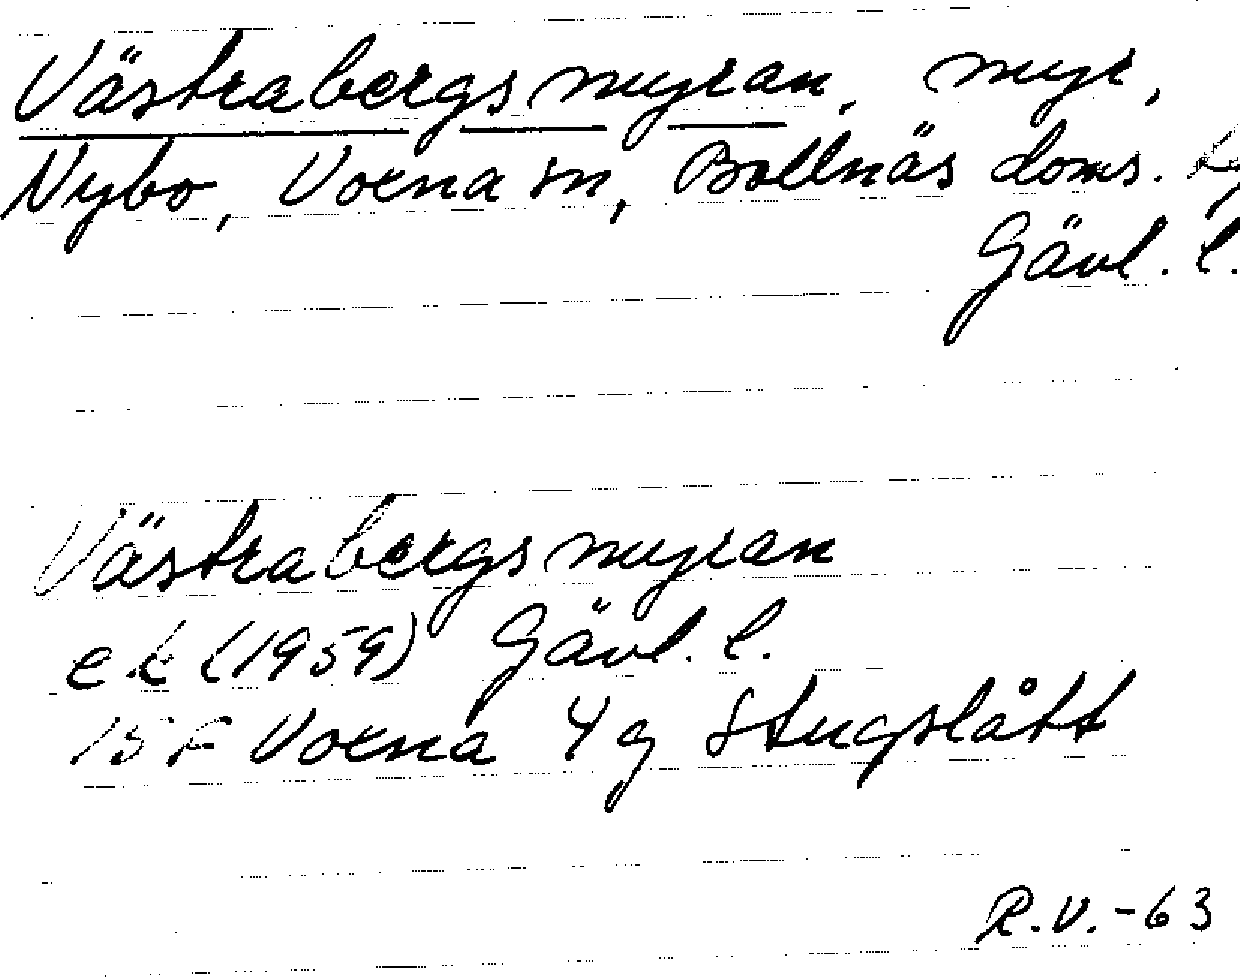 Västrabergsmyran, myr,
Nybo, Voxna sn, Bollnäs doms.
Gävl. l.
Västrabergsmyran
ek (1959) Gävl. l.
15 F Voxna 4g Stugslått
R.V.-63